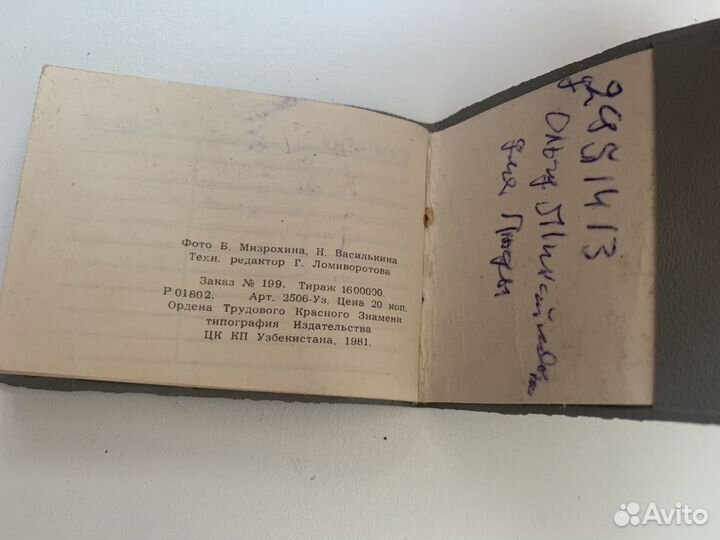 Фото Б. Мизрохина, Н. Василькина
Техн. редактор Г. Ломиворотова
Заказ № 199. Тираж 1600000.
Р 01802. Арт. 2506-Уз. Цена 20 коп.
Ордена Трудового Красного Знамени
типография Издательства
ЦК КП Узбекистана, 1981.
Ольгу
для
Avito